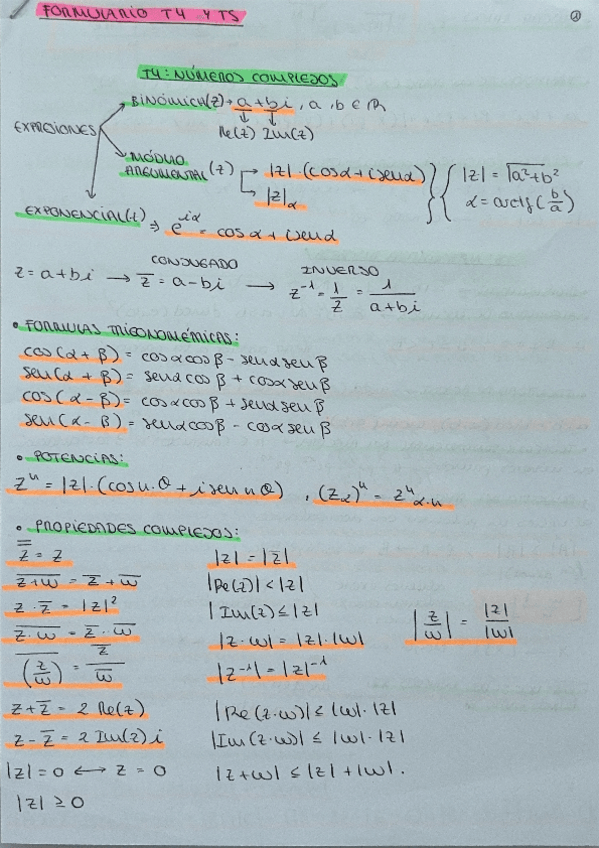 FORMULARIO T4 Y T5
T4: NÚMEROS COMPLEJOS
BINÓMICA(Z) → a + bi, a, b ∈ ℝ
Re(z) Im(z)
EXPRESIONES
MÓDULO ARGUMENTAL (z) → |z|·(cosα+isenα)
→ |z|α
|z| = √a²+b²
α = arctg(b/a)
EXPONENCIAL(z) ⇒ e^iα = cosα + isenα
CONJUGADO INVERSO
z = a+bi → z̅ = a-bi → z⁻¹ = 1/z = 1/(a+bi)
• FORMULAS TRIGONOMÉTRICAS:
cos(α + β) = cosαcosβ - senαsenβ
sen(α + β) = senαcosβ + cosαsenβ
cos(α - β) = cosαcosβ + senαsenβ
sen(α - β) = senαcosβ - cosαsenβ
• POTENCIAS:
Zⁿ = |z|·(cosn·θ + isen nθ), (Zα)ⁿ = Zⁿα·n
• PROPIEDADES COMPLEJOS:
z̿ = z |z| = |z̅|
\overline{z+w} = z̅ + w̅ |Re(z)| < |z|
z·z̅ = |z|² |Im(z) ≤ |z|
\overline{z·w} = z̅·w̅ |z·w| = |z|·|w| |z/w| = |z|/|w|
\overline{(z/w)} = z̅/w̅ |z⁻¹| = |z|⁻¹
z+z̅ = 2 Re(z) |Re(z·w)| ≤ |w|·|z|
z-z̅ = 2 Im(z) i |Im(z·w)| ≤ |w|·|z|
|z| = 0 ↔ z = 0 |z+w| ≤ |z|+|w|.
|z| ≥ 0